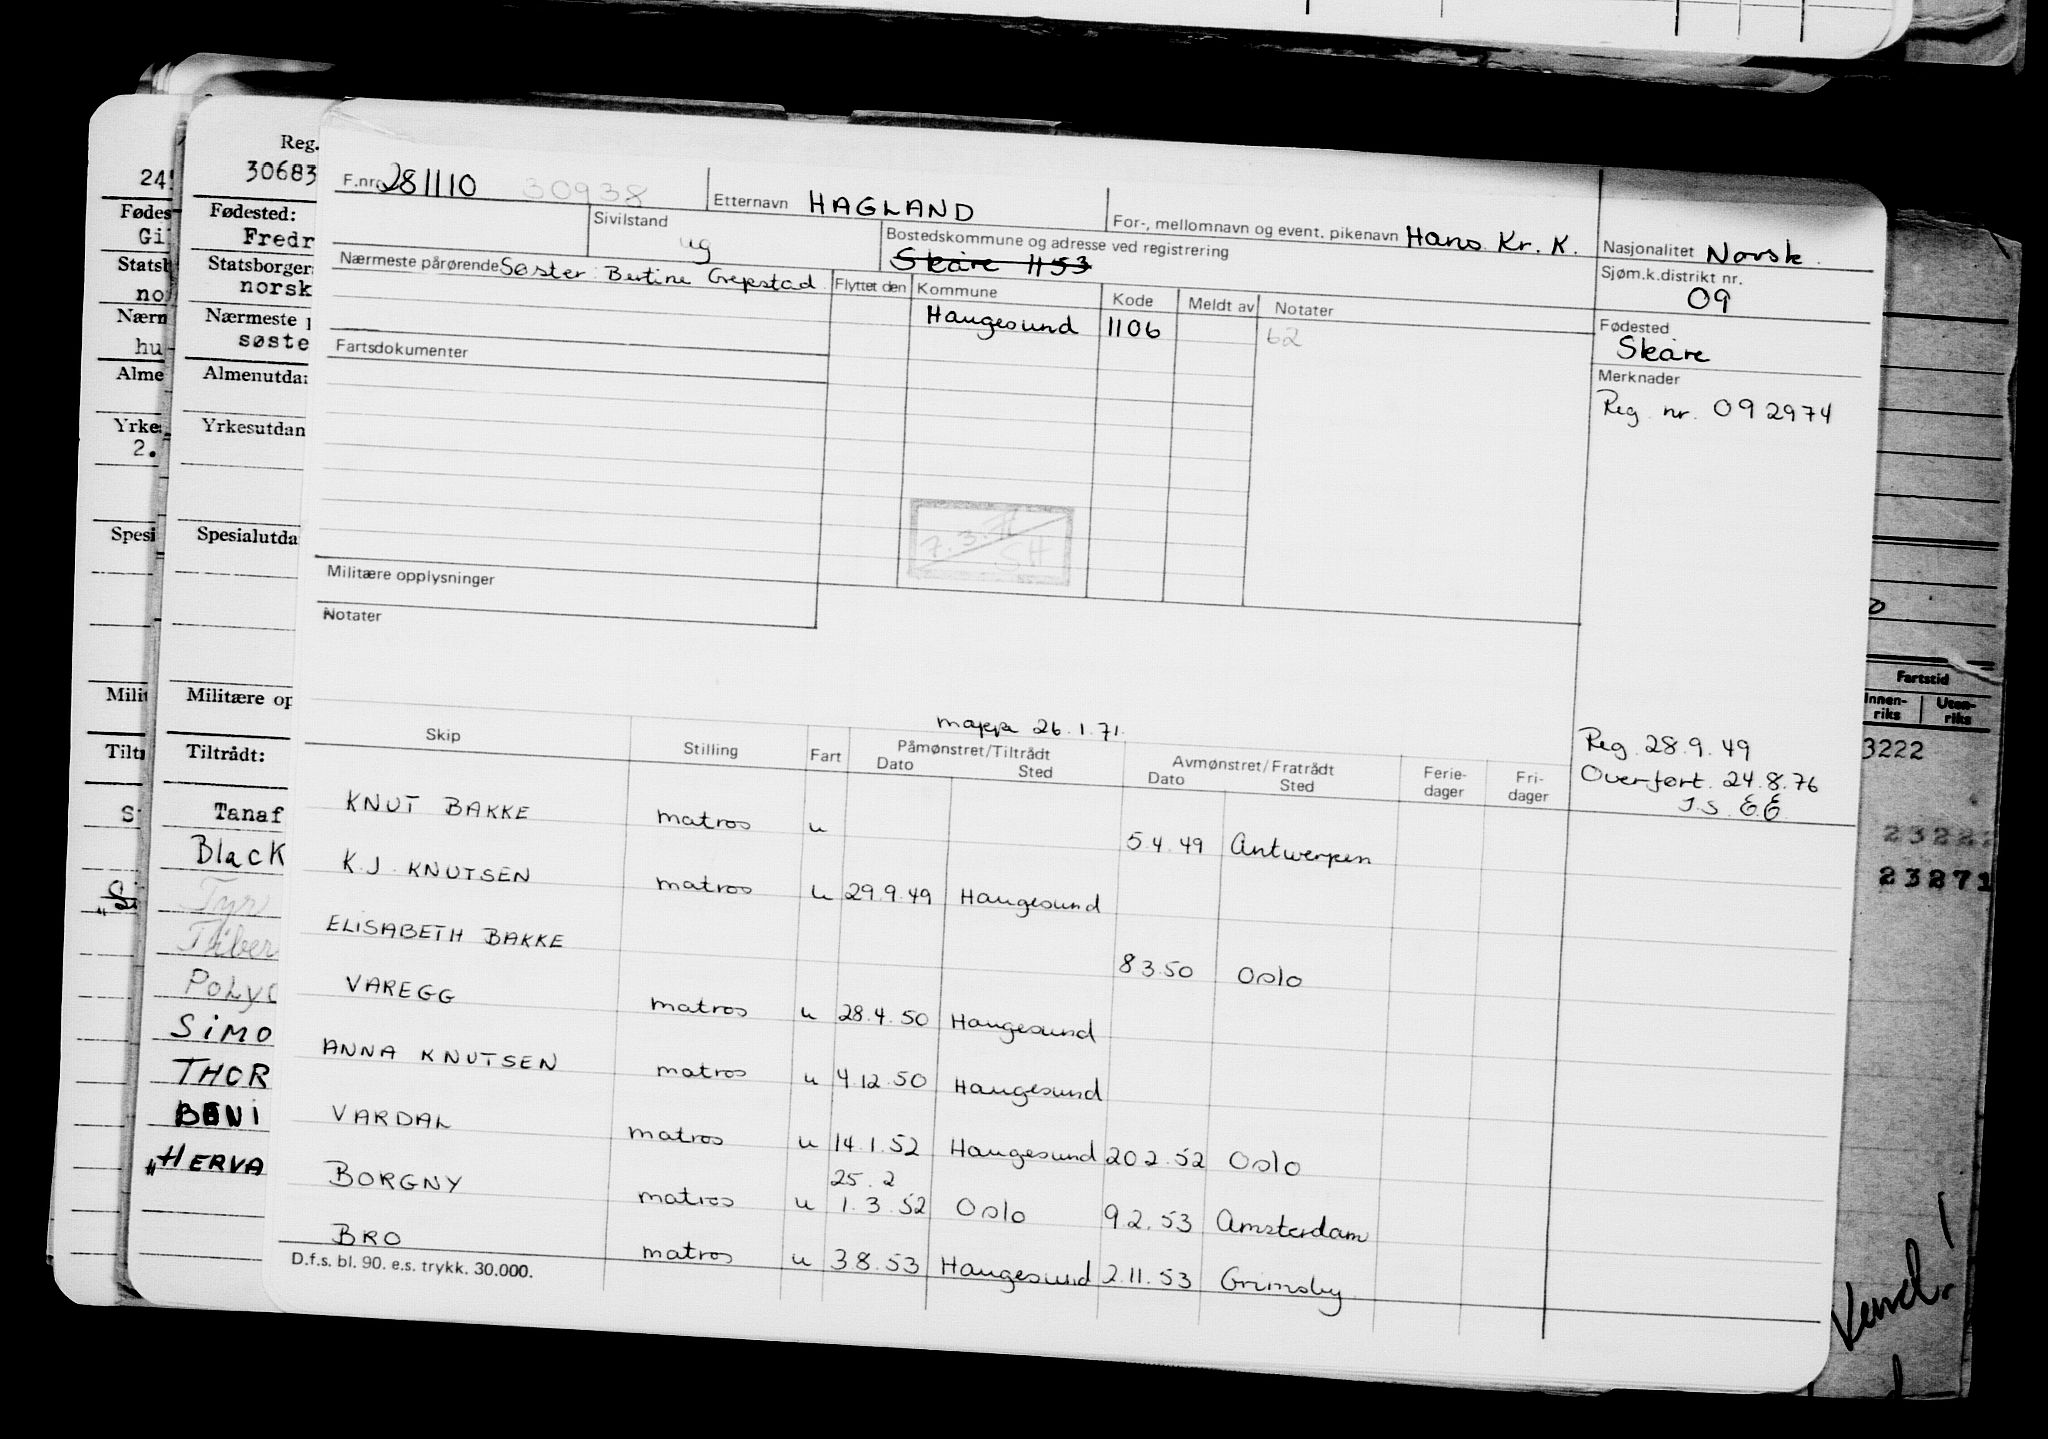 F.nr. 281110 30938
Etternavn HAGLAND
For-, mellomnavn og event. pikenavn Hans Kr. K.
Nasjonalitet Norsk.
Sivilstand
ug
Bostedskommune og adresse ved registrering
Skåre 1153
Sjøm.k.distrikt nr.
09
Nærmeste pårørende Søster: Bertine Grepstad
Flyttet den Kommune Kode Meldt av Notater
Haugesund 1106 62
Fødested
Skåre
Fartsdokumenter
Merknader
Reg. nr. 092974
7.3. SH
Militære opplysninger
Notater
mappe 26.1.71.
Skip Stilling Fart Påmønstret/Tiltrådt Avmønstret/Fratrådt Ferie-dager Fri-dager
Dato Sted Dato Sted
Reg. 28.9.49
Overført. 24.8.76
J.S. E.E.
KNUT BAKKE matros u 5.4.49 Antwerpen
K.J. KNUTSEN matros u 29.9.49 Haugesund
ELISABETH BAKKE 8 3.50 Oslo
VAREGG matros u 28.4.50 Haugesund
ANNA KNUTSEN matros u 4.12.50 Haugesund
VARDAL matros u 14.1.52 Haugesund 20 2.52 Oslo
25.2
BORGNY matros u 1.3.52 Oslo 9 2.53 Amsterdam
BRO matros u 3 8.53 Haugesund 2.11.53 Grimsby
D.f.s. bl. 90. e.s. trykk. 30.000.
Reg.
30683
Fødested:
Fredr
Statsborger
norsk
Nærmeste p
søste
Almenutda
Yrkesutdan
Spesialutda
Militære op
Tiltrådt:
Tanaf
Black
Tyr
Tiber
POLY
SIMO
THOR
BENI
"HERVA
24
Fødes
Gi
Statsb
no
Nærn
hu
Alme
Yrke
2.
Spesi
Milit
Tiltr
S
"Si
Fartstid
Innen-riks Uten-riks
3222
23271
Vend!